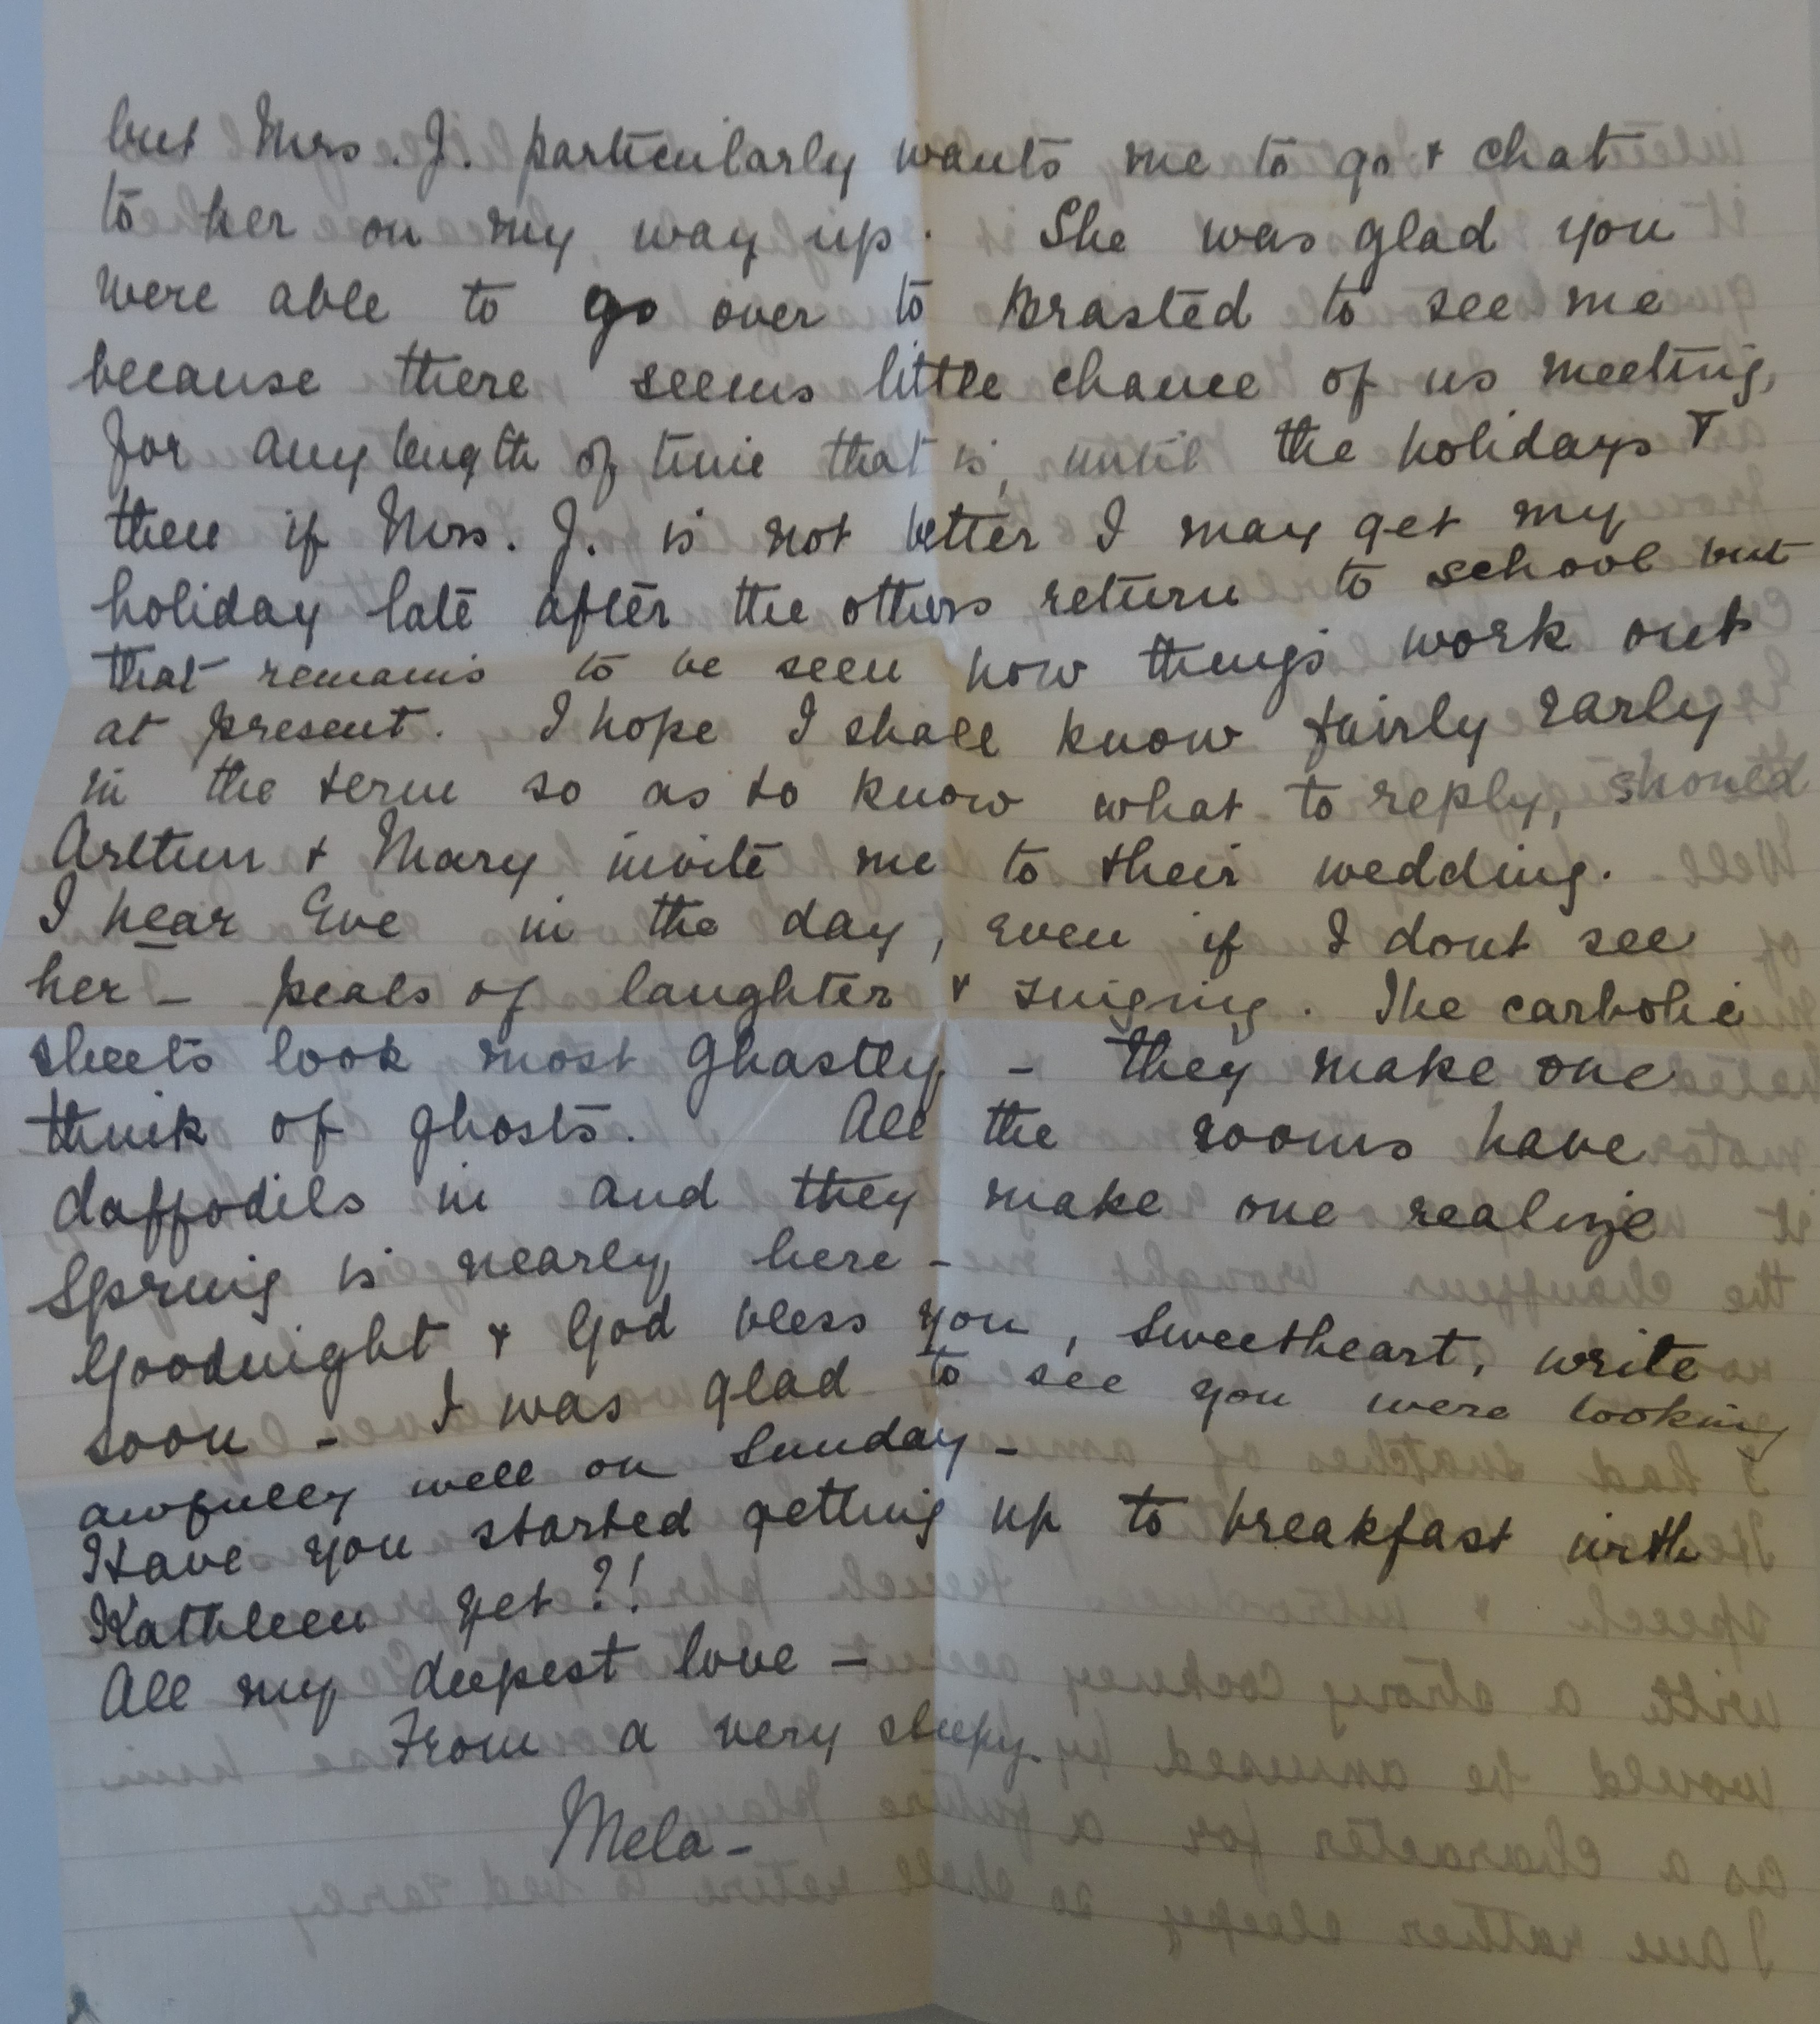 but Mrs. J. particularly wants me to go & chat
to her on my way up. She was glad you
were able to go over to Brasted to see me
because there seems little chance of us meeting,
for any length of time that is, until the holidays &
then if Mrs. J. is not better I may get my
holiday late after the others return to school but
that remains to be seen how things work out
at present. I hope I shall know fairly early
in the term so as to know what to reply, should
Arthur & Mary invite me to their wedding.
I hear Eve in the day, even if I dont see
her - peals of laughter & singing. The carbolic
sheets look most ghastly - they make one
think of ghosts. All the rooms have
daffodils in and they make one realize
Spring is nearly here -
Goodnight & God bless you, Sweetheart, write
soon - I was glad to see you were looking
awfully well on Sunday -
Have you started getting up to breakfast with
Kathleen yet?!
All my deepest love -
From a very sleepy
Mela -